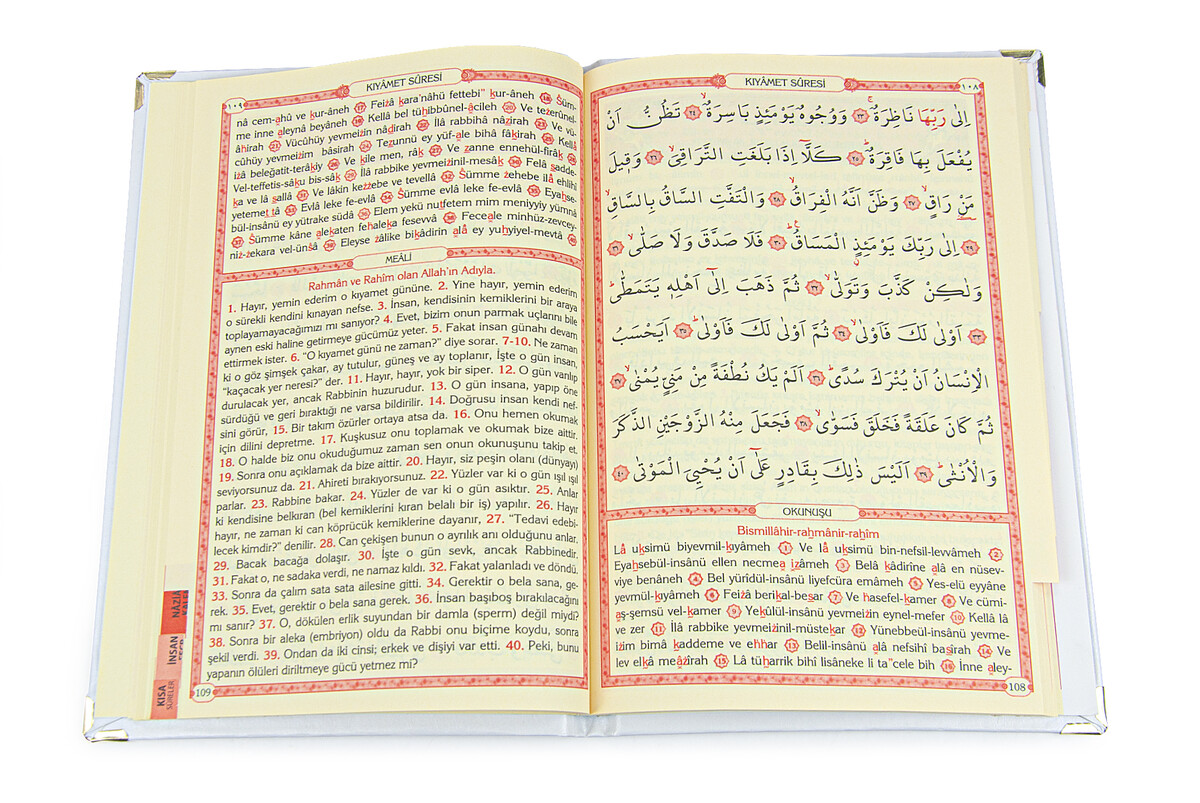 KIYÂMET SÛRESİ
١٠٨
اِلٰى رَبِّهَا نَاظِرَةٌۚ ﴿٢٣﴾ وَوُجُوهٌ يَوْمَئِذٍ بَاسِرَةٌۙ ﴿٢٤﴾ تَظُنُّ اَنْ
يُفْعَلَ بِهَا فَاقِرَةٌؕ ﴿٢٥﴾ كَلَّٓا اِذَا بَلَغَتِ التَّرَاقِيَۙ ﴿٢٦﴾ وَقٖيلَ
مَنْ رَاقٍۙ ﴿٢٧﴾ وَظَنَّ اَنَّهُ الْفِرَاقُۙ ﴿٢٨﴾ وَالْتَفَّتِ السَّاقُ بِالسَّاقِۙ
﴿٢٩﴾ اِلٰى رَبِّكَ يَوْمَئِذٍ الْمَسَاقُؕ ﴿٣٠﴾ فَلَا صَدَّقَ وَلَا صَلّٰىۙ ﴿٣١﴾
وَلٰكِنْ كَذَّبَ وَتَوَلّٰىۙ ﴿٣٢﴾ ثُمَّ ذَهَبَ اِلٰٓى اَهْلِهٖ يَتَمَطّٰىؕ
﴿٣٣﴾ اَوْلٰى لَكَ فَاَوْلٰىۙ ﴿٣٤﴾ ثُمَّ اَوْلٰى لَكَ فَاَوْلٰىؕ ﴿٣٥﴾ اَيَحْسَبُ
الْاِنْسَانُ اَنْ يُتْرَكَ سُدًىؕ ﴿٣٦﴾ اَلَمْ يَكُ نُطْفَةً مِنْ مَنِيٍّ يُمْنٰىۙ ﴿٣٧﴾
ثُمَّ كَانَ عَلَقَةً فَخَلَقَ فَسَوّٰىۙ ﴿٣٨﴾ فَجَعَلَ مِنْهُ الزَّوْجَيْنِ الذَّكَرَ
وَالْاُنْثٰىؕ ﴿٣٩﴾ اَلَيْسَ ذٰلِكَ بِقَادِرٍ عَلٰٓى اَنْ يُحْيِيَ الْمَوْتٰى ﴿٤٠﴾
OKUNUŞU
Bismillâhir-rahmânir-rahîm
Lâ uksimü biyevmil-kıyâmeh 1 Ve lâ uksimü bin-nefsil-levvameh 2
Eyahsebül-insânü ellen necmea izâmeh 3 Belâ kâdirîne alâ en nüsev-
viye benâneh 4 Bel yürîdül-insânü liyefcüra emâmeh 5 Yes-elü eyyâne
yevmül-kıyâmeh 6 Feizâ berikal-besar 7 Ve hasefel-kamer 8 Ve cümi-
aş-şemsü vel-kamer 9 Yekûlül-insânü yevmeizin eynel-mefer 10 Kellâ lâ
ve zer 11 İlâ rabbike yevmeizinil-müstekar 12 Yünebbeül-insânü yevme-
izim bimâ kaddeme ve ehhar 13 Belil-insânü alâ nefsihî basîrah 14 Ve
lev elkâ meâzîrah 15 Lâ tüharrik bihî lisâneke li ta"cele bih 16 İnne aley-
108
KIYÂMET SÛRESİ
١٠٩
nâ cem-ahû ve kur-âneh 17 Feizâ kara'nâhü fettebi" kur-âneh 18 Süm-
me inne aleynâ beyâneh 19 Kellâ bel tühibbûnel-âcileh 20 Ve tezerûnel-
âhirah 21 Vücûhüy yevmeizin nâdirah 22 İlâ rabbihâ nâzirah 23 Ve vü-
cûhüy yevmeizim bâsirah 24 Tezunnü ey yüf-ale bihâ fâkirah 25 Kellâ
izâ beleğatit-terâkiy 26 Ve kîle men, râk 27 Ve zanne ennehül-firâk 28
Vel-teffetis-sâku bis-sâk 29 İlâ rabbike yevmeizinil-mesâk 30 Felâ sadde-
ka ve lâ sallâ 31 Ve lâkin kezzebe ve tevellâ 32 Sümme zehebe ilâ ehlihî
yetemettâ 33 Evlâ leke fe-evlâ 34 Sümme evlâ leke fe-evlâ 35 Eyahse-
bül-insânü ey yütrake südâ 36 Elem yekü nutfetem mim meniyyiy yümnâ
37 Sümme kâne alekaten fehaleka fesevvâ 38 Feceale minhüz-zevcey-
niz-zekara vel-ünsâ 39 Eleyse zâlike bikâdirin alâ ey yuhyiyel-mevtâ 40
MEÂLİ
Rahmân ve Rahîm olan Allah'ın Adıyla.
1. Hayır, yemin ederim o kıyamet gününe. 2. Yine hayır, yemin ederim
o sürekli kendini kınayan nefse. 3. İnsan, kendisinin kemiklerini bir araya
toplayamayacağımızı mı sanıyor? 4. Evet, bizim onun parmak uçlarını bile
aynen eski haline getirmeye gücümüz yeter. 5. Fakat insan günahı devam
ettirmek ister. 6. "O kıyamet günü ne zaman?" diye sorar. 7-10. Ne zaman
ki o göz şimşek çakar, ay tutulur, güneş ve ay toplanır, İşte o gün insan,
"kaçacak yer neresi?" der. 11. Hayır, hayır, yok bir siper. 12. O gün vanlıp
durulacak yer, ancak Rabbinin huzurudur. 13. O gün insana, yapıp öne
sürdüğü ve geri bıraktığı ne varsa bildirilir. 14. Doğrusu insan kendi nef-
sini görür, 15. Bir takım özürler ortaya atsa da. 16. Onu hemen okumak
için dilini depretme. 17. Kuşkusuz onu toplamak ve okumak bize aittir.
18. O halde biz onu okuduğumuz zaman sen onun okunuşunu takip et.
19. Sonra onu açıklamak da bize aittir. 20. Hayır, siz peşin olanı (dünyayı)
seviyorsunuz da. 21. Ahireti bırakıyorsunuz. 22. Yüzler var ki o gün ışıl ışıl
parlar. 23. Rabbine bakar. 24. Yüzler de var ki o gün asıktır. 25. Anlar
ki kendisine belkıran (bel kemiklerini kıran belalı bir iş) yapılır. 26. Hayır
hayır, ne zaman ki can köprücük kemiklerine dayanır, 27. "Tedavi edebi-
lecek kimdir?" denilir. 28. Can çekişen bunun o ayrılık anı olduğunu anlar.
29. Bacak bacağa dolaşır. 30. İşte o gün sevk, ancak Rabbinedir.
31. Fakat o, ne sadaka verdi, ne namaz kıldı. 32. Fakat yalanladı ve döndü.
33. Sonra da çalım sata sata ailesine gitti. 34. Gerektir o bela sana, ge-
rek. 35. Evet, gerektir o bela sana gerek. 36. İnsan başıboş bırakılacağını
mı sanır? 37. O, dökülen erlik suyundan bir damla (sperm) değil miydi?
38. Sonra bir aleka (embriyon) oldu da Rabbi onu biçime koydu, sonra
şekil verdi. 39. Ondan da iki cinsi; erkek ve dişiyi var etti. 40. Peki, bunu
yapanın ölüleri diriltmeye gücü yetmez mi?
109
NÂZİA
İNSAN
KISA
SÛRELER